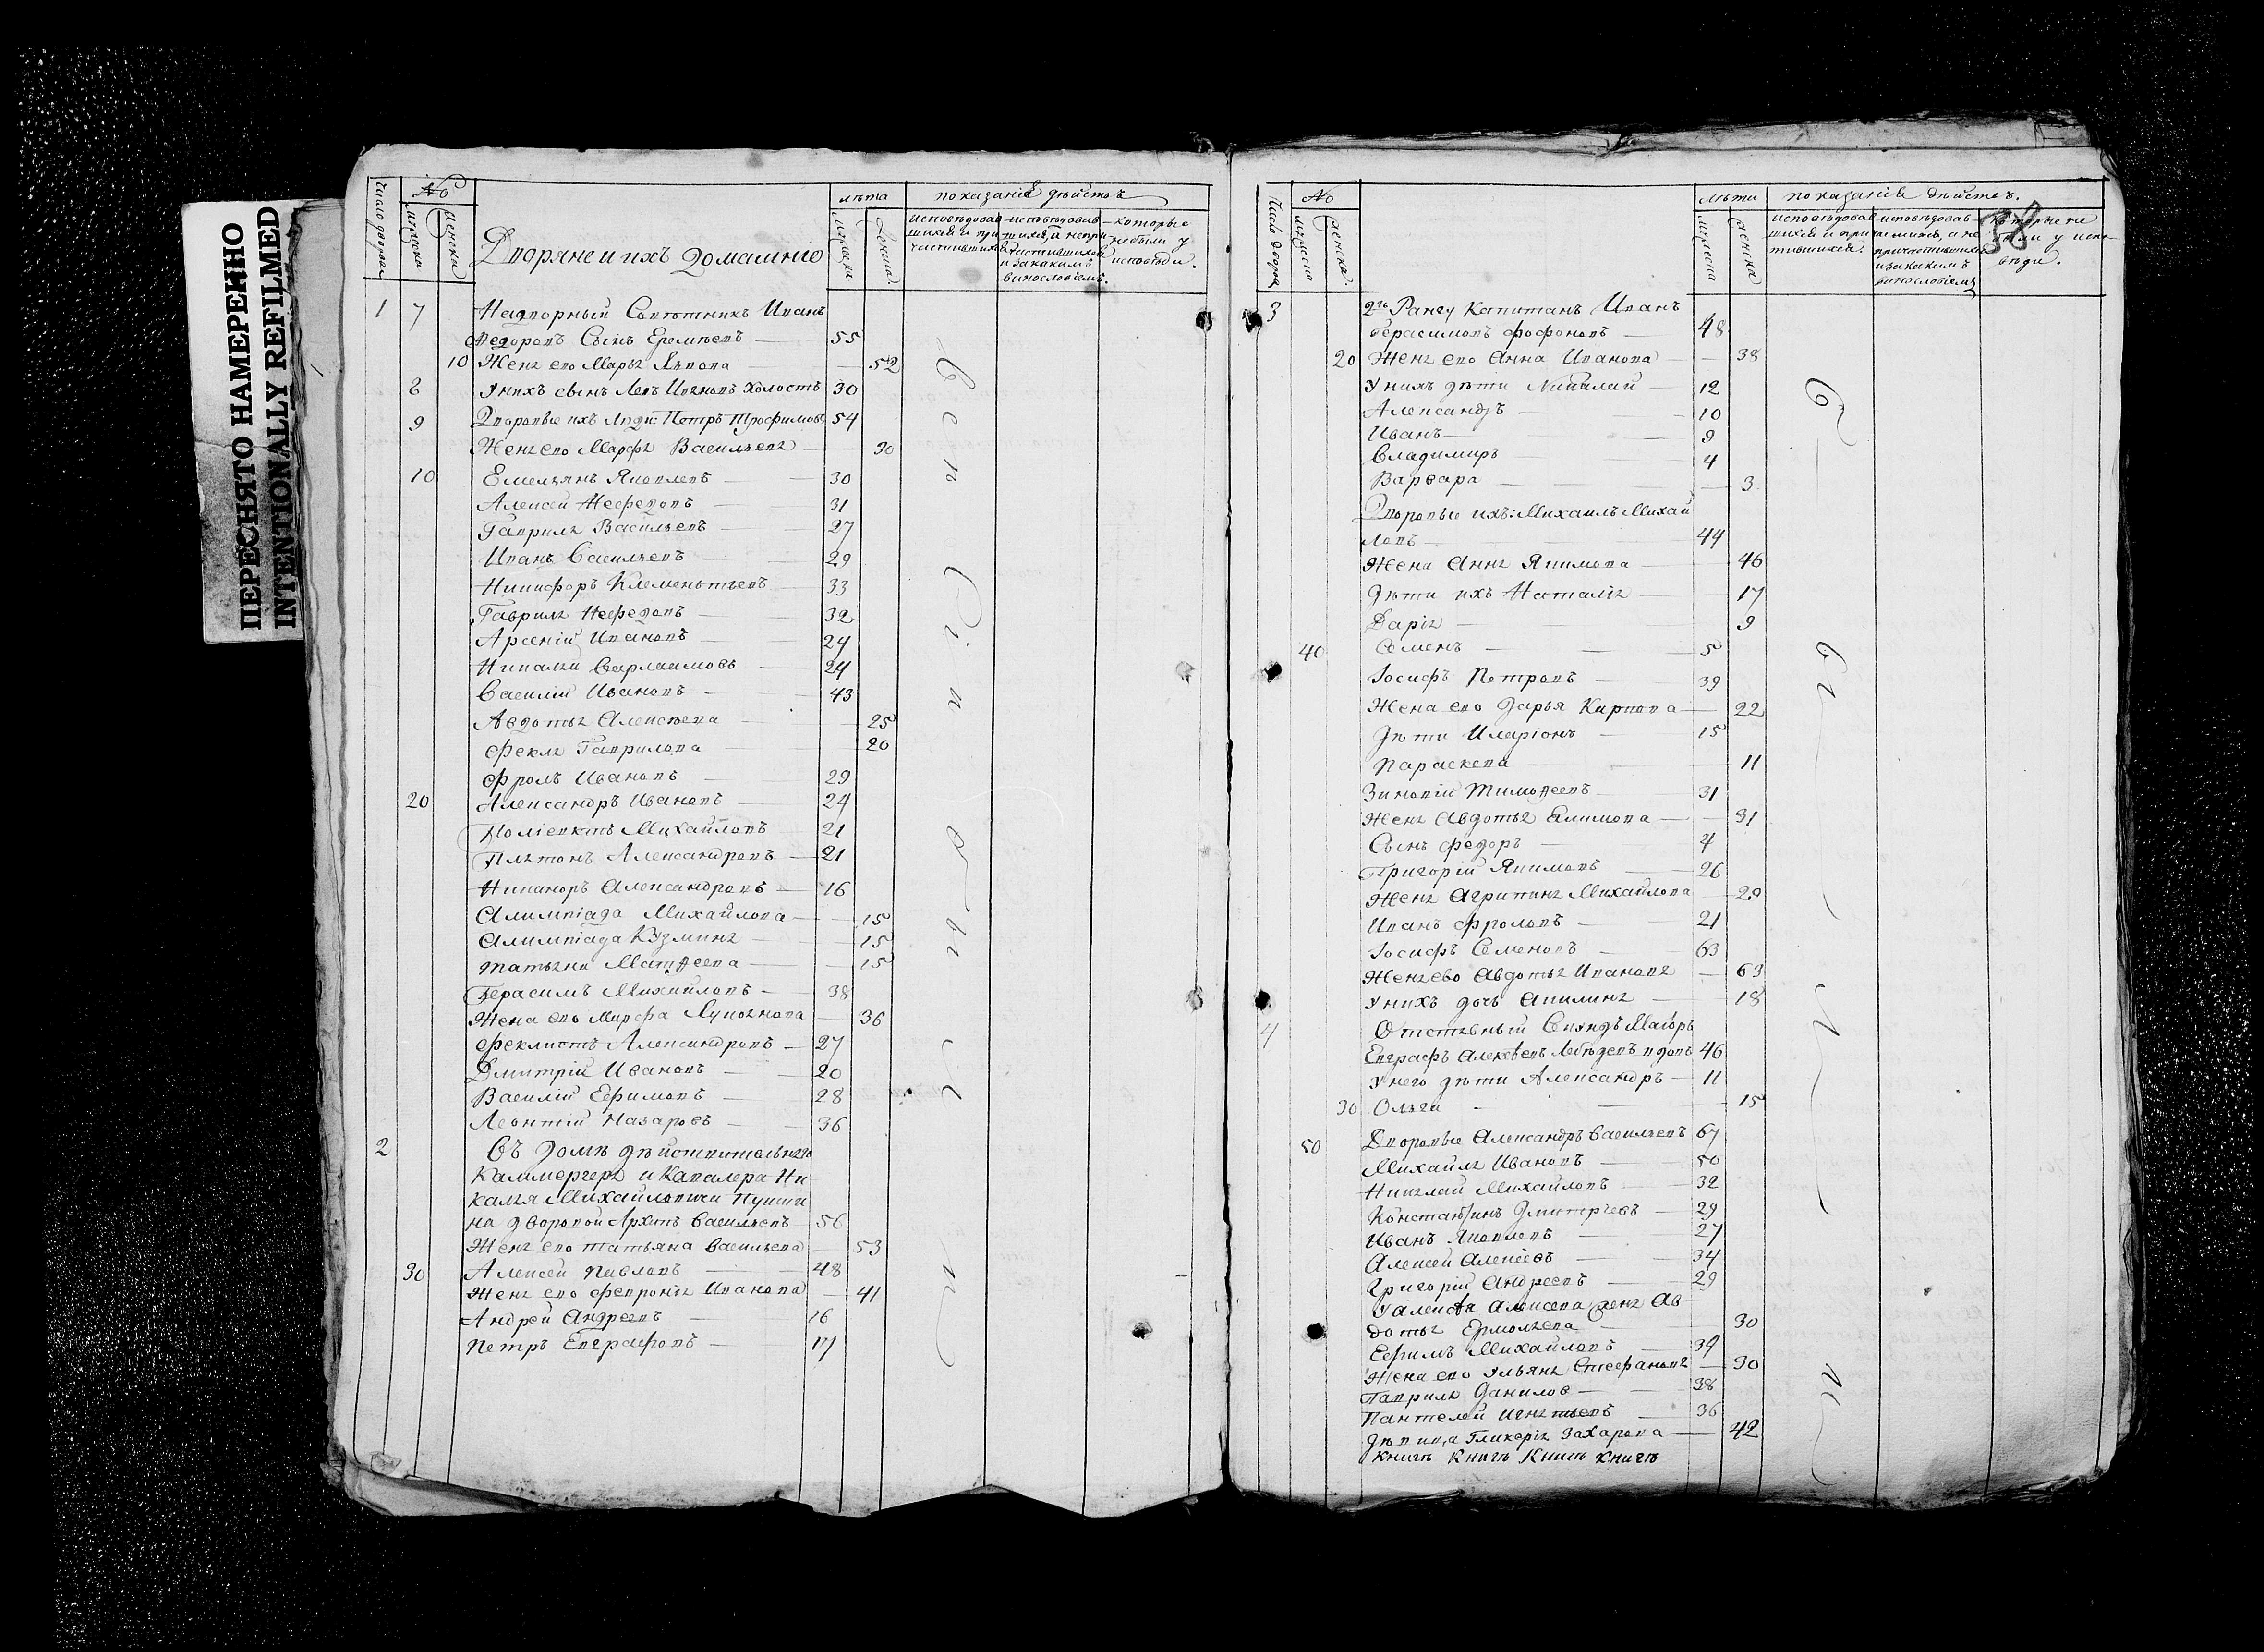 ПЕРЕСНЯТО НАМЕРЕННО
INTENTIONALLY REFILMED
Число дворовъ
№
мужеска
женска
Дворяне и ихъ домашніе
лѣта
мужеска
показаніе дѣйствъ
исповѣдовав
шихся и при
частившихся
исповѣдовав
шихся, и непри
частившихся
и за какимъ
винословіемъ.
которые
небыли у
исповѣди.
1 7 Надворный Совѣтникъ Иванъ
Федоровъ Сынъ Еремѣевъ 55
10 Жена его Марья Львова 52
8 У нихъ сынъ Левъ Ивановъ холостъ 30
9 Дворовые ихъ люди: Петръ Трофимовъ 54
Жена его Марфа Васильева 30
10 Емельянъ Яковлевъ 30
Алексей Нефедовъ 31
Гаврила Васильевъ 27
Иванъ Васильевъ 29
Никифоръ Клементьевъ 33
Гаврила Нефедовъ 32
Арсеній Ивановъ 24
Николай Варлаамовъ 24
Василій Ивановъ 43
Авдотья Алексѣева 25
Фекла Гаврилова 20
Фролъ Ивановъ 29
20 Александръ Ивановъ 24
Поліевктъ Михайловъ 21
Платонъ Александровъ 21
Никаноръ Александровъ 16
Алимпіада Михайлова 15
Алимпіада Кузмина 15
Татьяна Матѳеева 15
Герасимъ Михайловъ 38
Жена его Марфа Лукоянова 36
Феклистъ Александровъ 27
Дмитрій Ивановъ 20
Василій Ефимовъ 28
Леонтій Назаровъ 36
2 Въ домѣ дѣйствительнаго
Каммергера и Кавалера Ни
колая Михайловича Пушки
на дворовой Архипъ Васильевъ 56
Жена его Татьяна Васильева 53
30 Алексей Павловъ 48
Жена его Феврония Иванова 41
Андрей Андреевъ 16
Петръ Евграфовъ 17
Число дворовъ
№
мужеска
женска
лѣта
мужеска
женска
показаніе дѣйствъ.
исповѣдовав
шихся и при
тившихся.
исповѣдовав
шихся, а не
причастившихся
и за какимъ
винословіемъ
которые не
были у испо
вѣди.
38
3 2го Рангу Капитанъ Иванъ
Герасимовъ Фофоновъ 48
20 Жена его Анна Иванова 38
У нихъ дѣти Николай 12
Александръ 10
Иванъ 9
Владимиръ 4
Варвара 3
Дворовые ихъ: Михаилъ Михай
ловъ 44
Жена Анна Якимова 46
Дѣти ихъ Наталія 17
Дарія 9
40 Семенъ 5
Іосифъ Петровъ 39
Жена его Дарья Карпова 22
Дѣти Иларіонъ 15
Параскева 11
Зиновій Тимоѳеевъ 31
Жена Авдотья Екимова 31
Сынъ Федоръ 4
Григорій Якимовъ 26
Жена Агрипина Михайлова 29
Иванъ Фроловъ 21
Іосифъ Семеновъ 63
Жена ево Авдотья Иванова 63
У нихъ дочь Акилина 18
4 Отставный Секундъ Маіоръ
Евграфъ Алексѣевъ Лебѣдевъ вдовъ 46
У него дѣти Александръ 11
30 Ольга 15
50 Дворовые Александръ Васильевъ 67
Михайла Ивановъ 50
Николай Михайловъ 32
Константинъ Дмитріевъ 29
Иванъ Яковлевъ 27
Алексей Алексеевъ 34
Григорій Андреевъ 29
У Алексѣя Алексеева жена Ав
дотья Ермолаева 30
Ефимъ Михайловъ 34
Жена его Ульяна Стефанова 30
Гаврила Даниловъ 38
Пантелей Игнатьевъ 36
Дѣвица Гликерія Захарова 42
Книгъ Книгъ Книгъ Книгъ